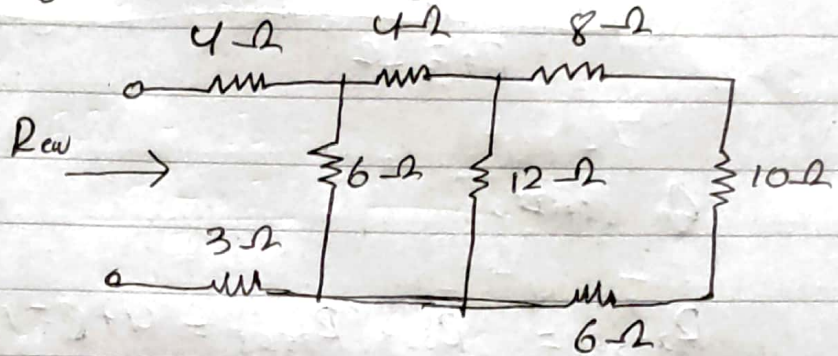 4Ω 4Ω 8Ω
Rew
6Ω 12Ω 10Ω
3Ω
6Ω